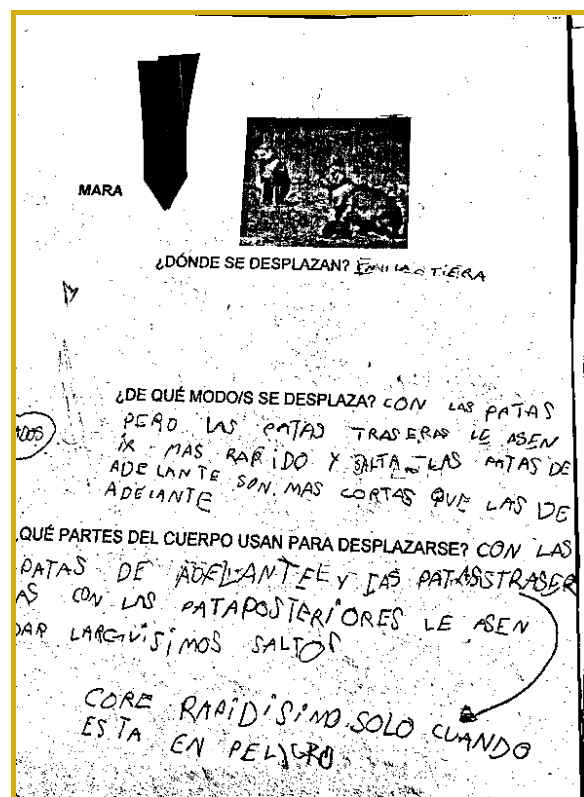 MARA
¿DÓNDE SE DESPLAZAN? EN LA TIERA
¿DE QUÉ MODO/S SE DESPLAZA? CON LAS PATAS
ADOS
PERO LAS PATAS TRASERAS LE ASEN
IR MAS RAPIDO Y SALTA LAS PATAS DE
ADELANTE SON MAS CORTAS QUE LAS DE
ADELANTE
QUÉ PARTES DEL CUERPO USAN PARA DESPLAZARSE? CON LAS
PATAS DE ADELANTEE Y LAS PATASSTRASER
AS CON LAS PATAPOSTERIORES LE ASEN
DAR LARGUISIMOS SALTOS
CORE RAPIDISIMO SOLO CUANDO
ESTA EN PELIGRO